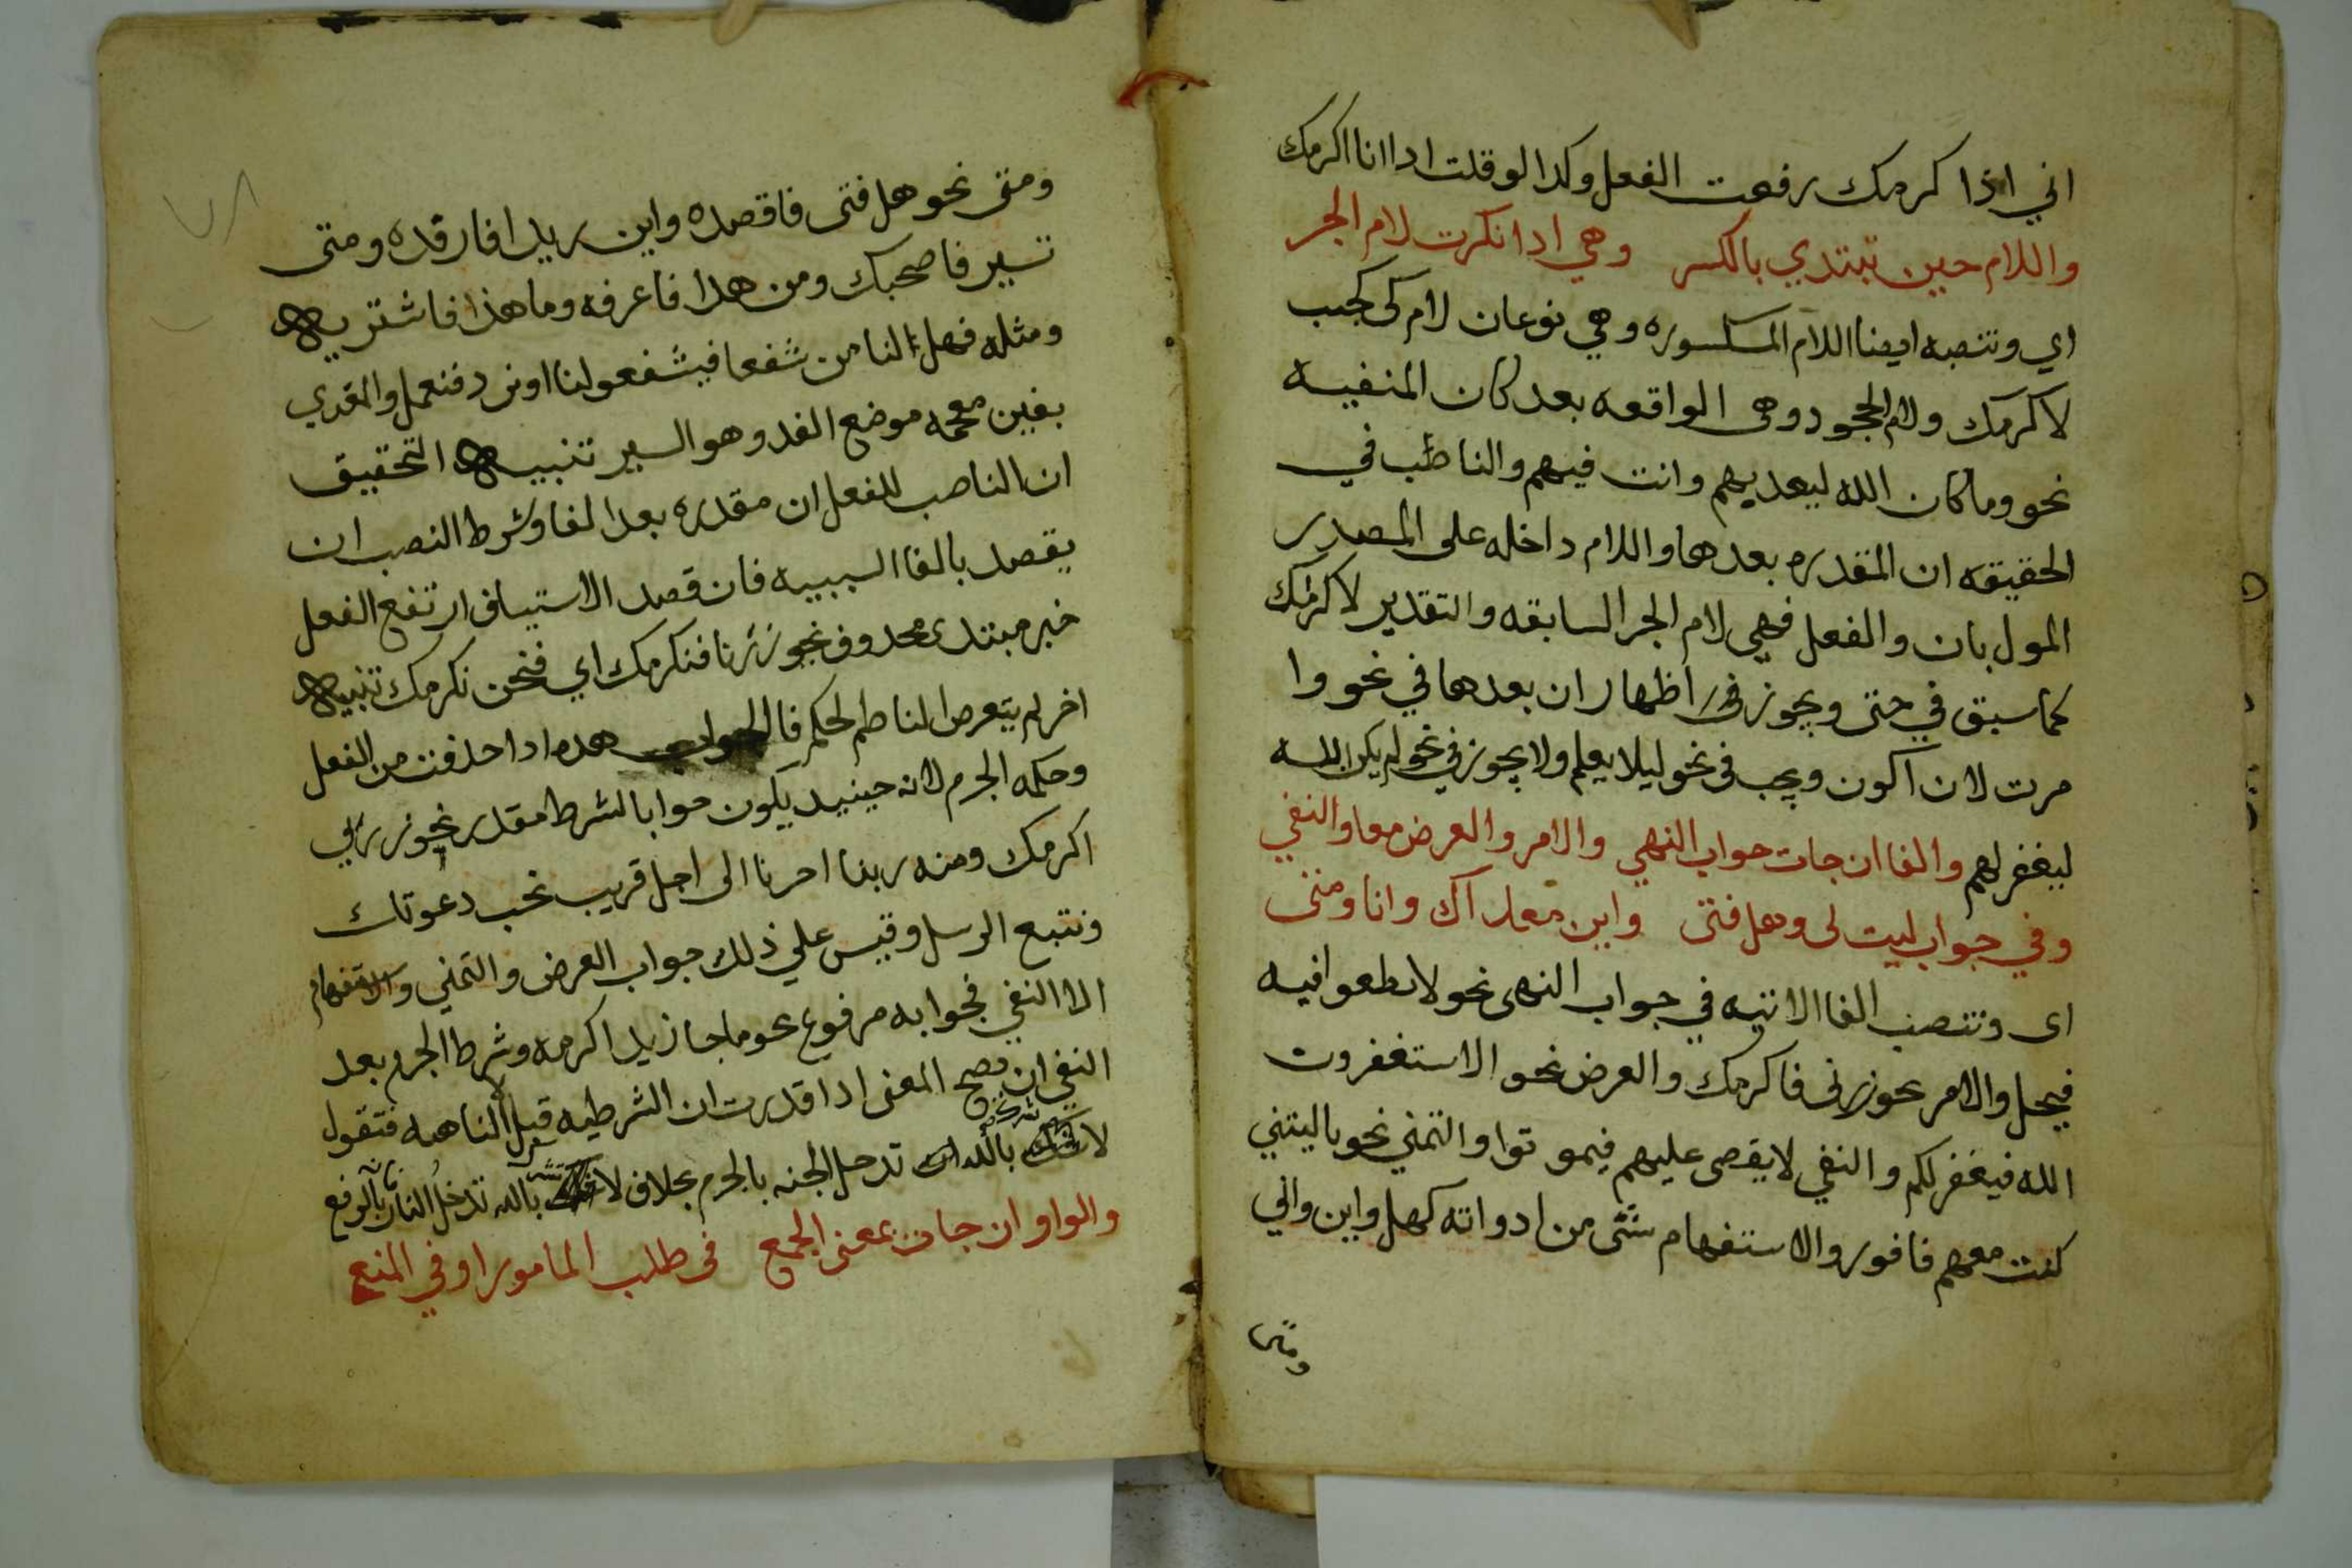 اني اذا اكرمك رفعت الفعل وكدا لو قلت ادا انا اكرمك
واللام حين تبتدي بالكسر وهي ادا انكرت لام الجر
اي وتنصبه ايضا اللام المكسوره وهي نوعان لام كى كجيت
لاكرمك ولام الجحود وهى الواقعه بعد كان المنفيه
نحو وما كان الله ليعديهم وانت فيهم والناصب في
الحقيقه ان المقدره بعدها واللام داخله على المصدر
المول بان والفعل فهي لام الجر السابقه والتقدير لاكرمك
كما سبق في حتى ويجوز في اظهار ان بعدها في نحو وا
مرت لان اكون ويجب فى نحو ليلا يعلم ولا يجوز في نحو لم يكن الله
ليغفر لهم والفا ان جات جواب النهي والامر والعرض معا والنفي
وفي جواب ليت لى وهل فتى واين مغداك وانا ومتى
اى وتنتصب الفا الاتيه في جواب النهى نحو لا تطغوا فيه
فيحل والامر نحو زرنى فاكرمك والعرض نحو الا تستغفرون
الله فيغفر لكم والنفي لا يقضى عليهم فيموتوا والتمني نحو ياليتني
كنت معهم فافوز والاستفهام بشي من ادواته كهل واين واني
ومتى
ومتى نحو هل فتى فاقصده واين زيد افارقده ومتى
تسير فاصحبك ومن هدا فاعرفه وما هذا فاشتريه
ومثله فهل لنا من شفعا فيشفعوا لنا او نرد فنعمل والمغدي
بغين معجمه موضع الغدو وهو السير تنبيه التحقيق
ان الناصب للفعل ان مقدره بعد الفا وشرط النصب ان
يقصد بالفا السببيه فان قصد الاستيناف ارتفع الفعل
خبر مبتدى محدوف نحو زرنا فنكرمك اي فنحن نكرمك تنبيه
اخر لم يتعرض الناظم لحكم فا الجواب هده ادا حذفت من الفعل
وحكمه الجزم لانه حينيد يكون جوابا لشرط مقدر نحو زرني
اكرمك ومنه ربنا اخرنا الى اجل قريب نجب دعوتك
ونتبع الرسل وقيس علي ذلك جواب العرض والتمني والاستفهام
الا النفي فجوابه مرفوع نحو ما جا زيد اكرمه وشرط الجزم بعد
النفي ان يصح المعنى ادا قدرت ان الشرطيه قبل لا الناهيه فتقول
لا تشرك بالله تدخل الجنه بالجزم بخلاف لا تشرك بالله تدخل النار بالرفع
والواو ان جات بمعنى الجمع فى طلب المامور او في المنع